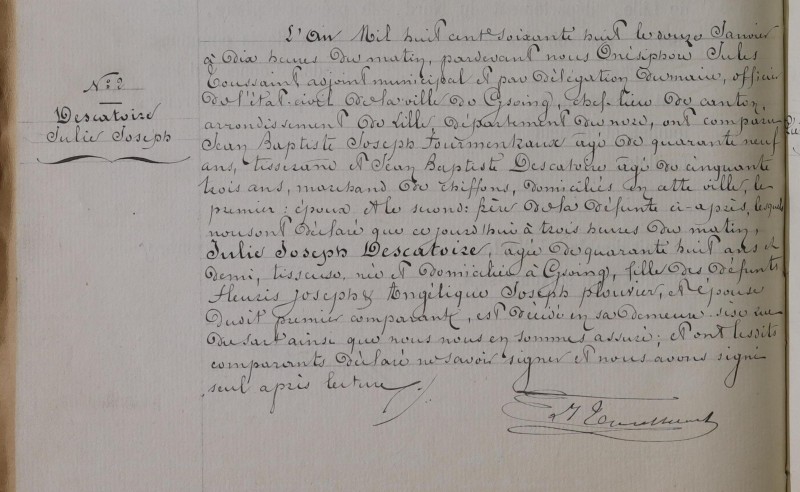 N.º 2
Descatoire
Julie Joseph
L'An Mil huit cent soixante huit le douze Janvier
à dix heures du matin, pardevant nous Onésiphore Jules
Toussaint adjoint municipal et par délégation du maire, officier
de l'état-civil de la ville de Cysoing, chef-lieu de canton,
arrondissement de Lille, département du nord, ont comparu
Jean Baptiste Joseph Fourmentraux âgé de quarante neuf
ans, tisserand et Jean Baptiste Descatoire âgé de cinquante
trois ans, marchand de chiffons, domiciliés en cette ville, le
premier : époux et le second : frère de la défunte ci-après, lesquels
nous ont déclaré que ce jourd'hui à trois heures du matin,
Julie Joseph Descatoire, agée de quarante huit ans et
demi, tisseuse, née et domiciliée à Cysoing, fille des défunts
Fleuris Joseph & Angélique Joseph Plouvier, et épouse
dudit premier comparant, est décédée en sa demeure sise rue
du sart ainsi que nous nous en sommes assuré; et ont lesdits
comparants déclaré ne savoir signer et nous avons signé
seul après lecture
J Toussaint